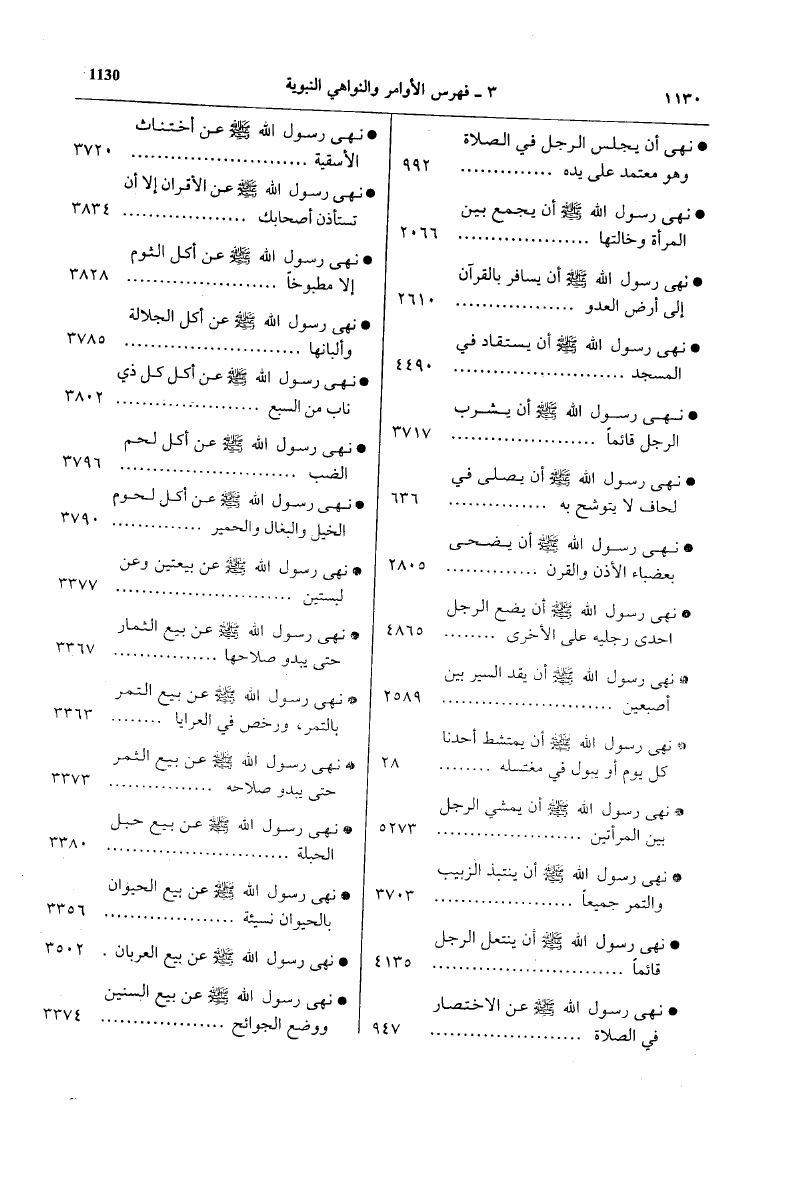 ١١٣٠
٣ - فهرس الأوامر والنواهي النبوية
1130
● نهى أن يجلس الرجل في الصلاة
وهو معتمد على يده .............. ٩٩٢
● نهى رسول الله ﷺ أن يجمع بين
المرأة وخالتها .................. ٢٠٦٦
● نُهى رسول الله ﷺ أن يسافر بالقرآن
إلى أرض العدو ................. ٢٦١٠
● نهى رسول الله ﷺ أن يستقاد في
المسجد ......................... ٤٤٩٠
● نهى رسول الله ﷺ أن يشرب
الرجل قائماً ..................... ٣٧١٧
● نهى رسول الله ﷺ أن يصلى في
لحاف لا يتوشح به .............. ٦٣٦
● نهى رسول الله ﷺ أن يضحى
بعضباء الأذن والقرن ............. ٢٨٠٥
● نهى رسول الله ﷺ أن يضع الرجل
احدى رجليه على الأخرى ........ ٤٨٦٥
● نهى رسول الله ﷺ أن يقد السير بين
أصبعين ......................... ٢٥٨٩
● نهى رسول الله ﷺ أن يمتشط أحدنا
كل يوم أو يبول في مغتسله ........ ٢٨
● نهى رسول الله ﷺ أن يمشي الرجل
بين المرأتين ..................... ٥٢٧٣
● نهى رسول الله ﷺ أن ينتبذ الزبيب
والتمر جميعاً .................... ٣٧٠٣
● نهى رسول الله ﷺ أن ينتعل الرجل
قائماً ........................... ٤١٣٥
● نهى رسول الله ﷺ عن الاختصار
في الصلاة ...................... ٩٤٧
● نهى رسول الله ﷺ عن أختناث
الأسقية .......................... ٣٧٢٠
● نهى رسول الله ﷺ عن الأقران إلا أن
تستأذن أصحابك .................. ٣٨٣٤
● نهى رسول الله ﷺ عن أكل الثوم
إلا مطبوخاً ...................... ٣٨٢٨
● نهى رسول الله ﷺ عن أكل الجلالة
وألبانها .......................... ٣٧٨٥
● نهى رسول الله ﷺ عن أكل كل ذي
ناب من السبع .................... ٣٨٠٢
● نهى رسول الله ﷺ عن أكل لحم
الضب ........................... ٣٧٩٦
● نهى رسول الله ﷺ عن أكل لحوم
الخيل والبغال والحمير ............. ٣٧٩٠
● نهى رسول الله ﷺ عن بيعتين وعن
لبستين .......................... ٣٣٧٧
● نهى رسول الله ﷺ عن بيع الثمار
حتى يبدو صلاحها ............... ٣٣٦٧
● نهى رسول الله ﷺ عن بيع التمر
بالتمر، ورخص في العرايا ........ ٣٣٦٣
● نهى رسول الله ﷺ عن بيع الثمر
حتى يبدو صلاحه ............... ٣٣٧٣
● نهى رسول الله ﷺ عن بيع حبل
الحبلة ........................... ٣٣٨٠
● نهى رسول الله ﷺ عن بيع الحيوان
بالحيوان نسيئة ................... ٣٣٥٦
● نهى رسول الله ﷺ عن بيع العربان . ٣٥٠٢
● نهى رسول الله ﷺ عن بيع السنين
ووضع الجوائح .................. ٣٣٧٤